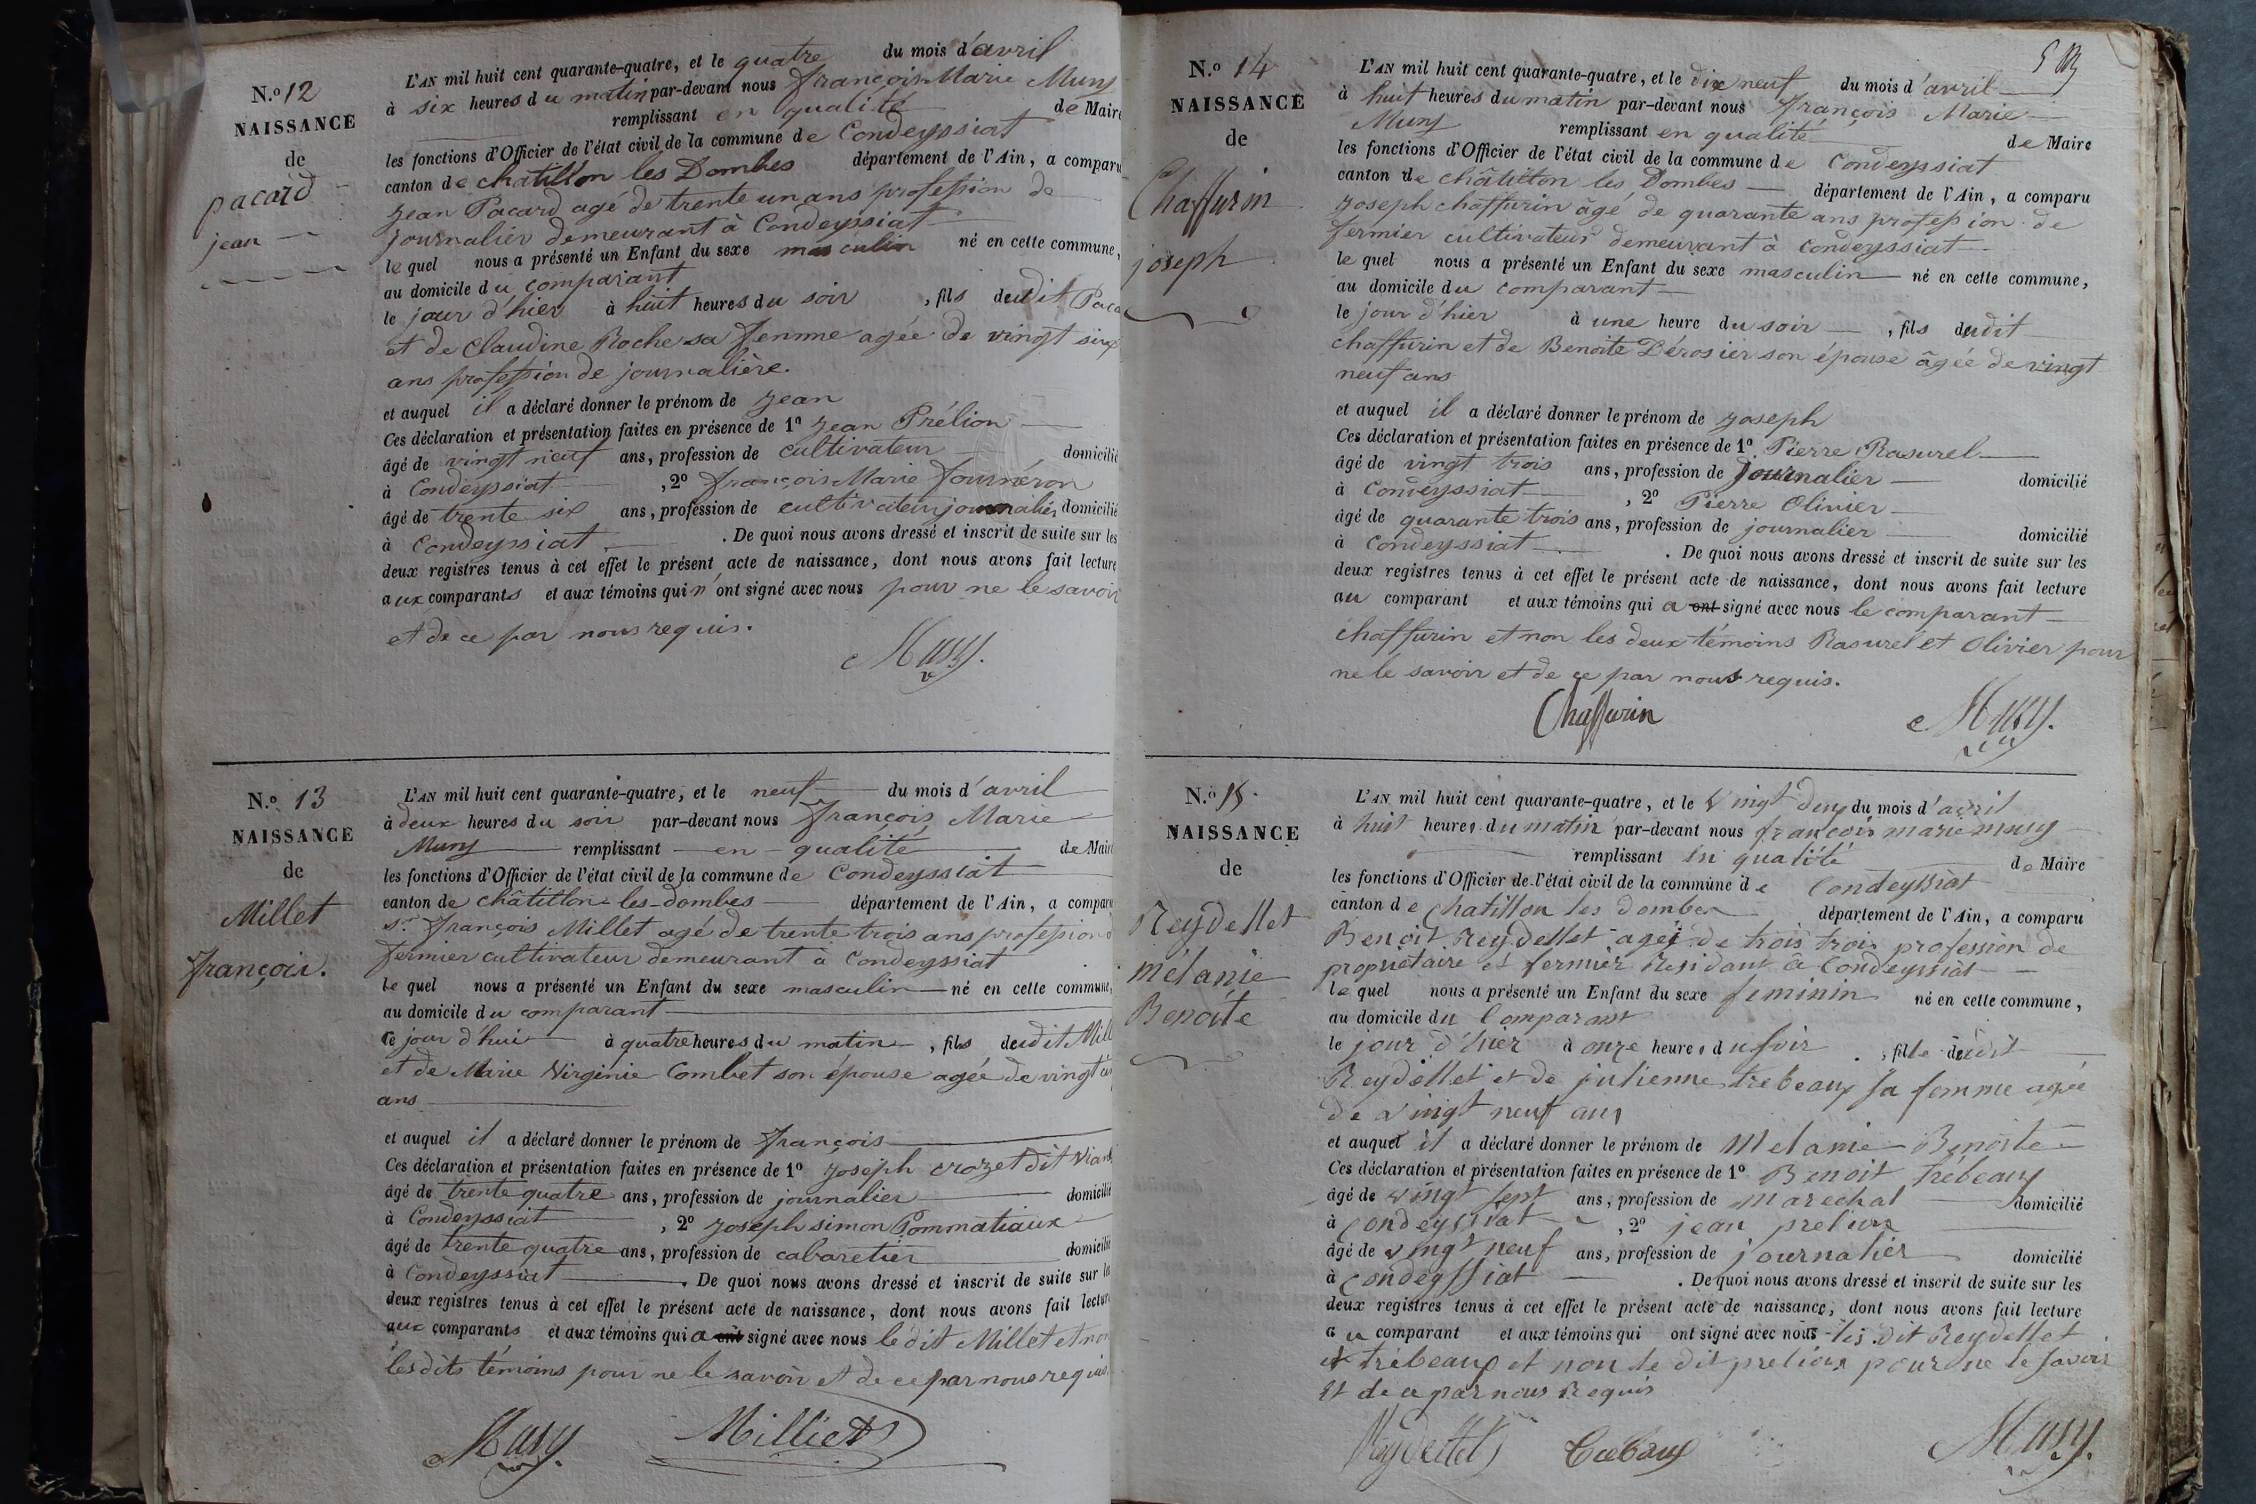 N.º 12
NAISSANCE
de
pacard
jean
L'AN mil huit cent quarante-quatre, et le quatre du mois d'avril
à six heures du matin par-devant nous François Marie Muny
remplissant en qualité de Maire
les fonctions d'Officier de l'état civil de la commune de Condeyssiat
canton de châtillon les Dombes département de l'Ain, a comparu
Jean Pacard agé de trente un ans profession de
journalier demeurant à Condeyssiat
le quel nous a présenté un Enfant du sexe masculin né en cette commune,
au domicile du comparant
le jour d'hier à huit heures du soir, fils dudit Paca
et de Claudine Roche sa femme agée de vingt six
ans profession de journalière.
et auquel il a déclaré donner le prénom de Jean
Ces déclaration et présentation faites en présence de 1º Jean Prélion
âgé de vingt neuf ans, profession de cultivateur domicilié
à Condeyssiat, 2º François Marie Fournéron
âgé de trente six ans, profession de cultivateur journalier domicilié
à Condeyssiat. De quoi nous avons dressé et inscrit de suite sur les
deux registres tenus à cet effet le présent acte de naissance, dont nous avons fait lecture
aux comparants et aux témoins qui n'ont signé avec nous pour ne le savoir
et de ce par nous requis.
Muny.
N.º 13
NAISSANCE
de
Millet
François.
L'AN mil huit cent quarante-quatre, et le neuf du mois d'avril
à deux heures du soir par-devant nous François Marie
Muny remplissant en qualité de Maire
les fonctions d'Officier de l'état civil de la commune de Condeyssiat
canton de châtillon-les-dombes département de l'Ain, a comparu
Sr. François Millet agé de trente trois ans profession
fermier cultivateur demeurant à Condeyssiat
le quel nous a présenté un Enfant du sexe masculin né en cette commune,
au domicile du comparant
ce jour d'hui à quatre heures du matin, fils dudit Mill
et de Marie Virginie Combet son épouse agée de vingt
ans
et auquel il a déclaré donner le prénom de François
Ces déclaration et présentation faites en présence de 1º Joseph crozet dit
âgé de trente quatre ans, profession de journalier domicilié
à Condeyssiat, 2º Joseph simon Pommatiaux
âgé de trente quatre ans, profession de cabaretier domicilié
à Condeyssiat. De quoi nous avons dressé et inscrit de suite sur les
deux registres tenus à cet effet le présent acte de naissance, dont nous avons fait lecture
aux comparants et aux témoins qui a ont signé avec nous le dit Millet et non
les dits témoins pour ne le savoir et de ce par nous requis.
Muny. Milliet
N.º 14
NAISSANCE
de
Chaffurin
joseph
L'AN mil huit cent quarante-quatre, et le dix neuf du mois d'avril
à huit heures du matin par-devant nous François Marie
Muny remplissant en qualité de Maire
les fonctions d'Officier de l'état civil de la commune de Condeyssiat
canton de châtillon les Dombes département de l'Ain, a comparu
Joseph chaffurin âgé de quarante ans profession de
fermier cultivateur demeurant à condeyssiat
le quel nous a présenté un Enfant du sexe masculin né en cette commune,
au domicile du comparant
le jour d'hier à une heure du soir, fils dudit
chaffurin et de Benoite Dérosier son épouse âgée de vingt
neuf ans
et auquel il a déclaré donner le prénom de Joseph
Ces déclaration et présentation faites en présence de 1º Pierre Rasurel
âgé de vingt trois ans, profession de journalier domicilié
à Condeyssiat, 2º Pierre Olivier
âgé de quarante trois ans, profession de journalier domicilié
à Condeyssiat. De quoi nous avons dressé et inscrit de suite sur les
deux registres tenus à cet effet le présent acte de naissance, dont nous avons fait lecture
au comparant et aux témoins qui a ont signé avec nous le comparant
chaffurin et non les deux témoins Rasurel et Olivier pour
ne le savoir et de ce par nous requis.
Chaffurin Muny.
N.º 15.
NAISSANCE
de
Reydellet
mélanie
Benoîte
L'AN mil huit cent quarante-quatre, et le vingt deux du mois d'avril
à huit heures du matin par-devant nous françois marie muny
remplissant en qualité de Maire
les fonctions d'Officier de l'état civil de la commune de Condeyssiat
canton de chatillon les dombes département de l'Ain, a comparu
Benoit Reydellet agé de trois trois profession de
propriétaire et fermier Residant à Condeyssiat
le quel nous a présenté un Enfant du sexe feminin né en cette commune,
au domicile du Comparant
le jour d'hier à onze heures du soir, fille dudit
Reydellet et de julienne trebeaux sa femme agée
de vingt neuf ans
et auquel il a déclaré donner le prénom de Melanie Benoite
Ces déclaration et présentation faites en présence de 1º Benoit Trébeaux
âgé de vingt sept ans, profession de marechal domicilié
à Condeyssiat, 2º jean prelion
âgé de vingt neuf ans, profession de journalier domicilié
à condeyssiat. De quoi nous avons dressé et inscrit de suite sur les
deux registres tenus à cet effet le présent acte de naissance, dont nous avons fait lecture
au comparant et aux témoins qui ont signé avec nous les dit Reydellet
et trébeaux et non le dit prelion pour ne le savoir
Et de ce par nous Requis
Reydellet Trebaux Muny.